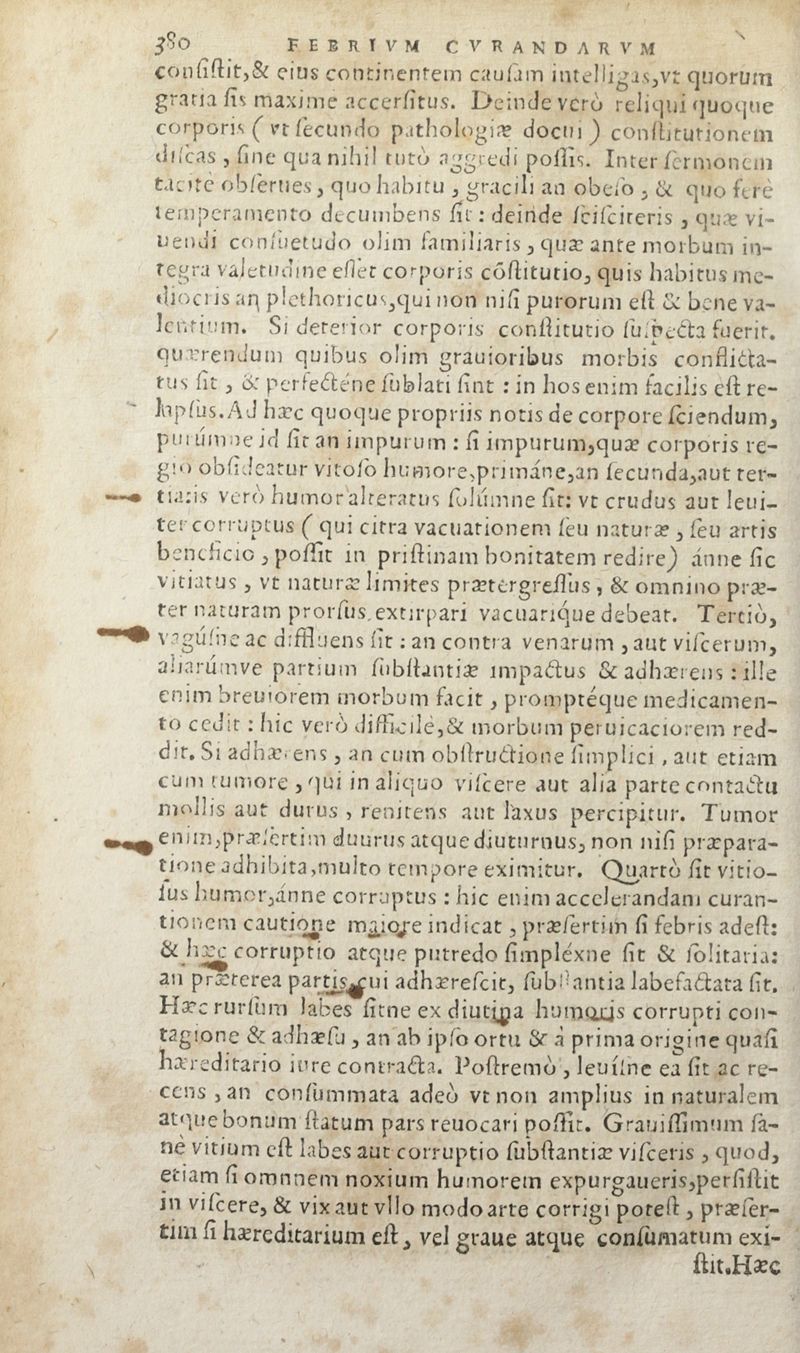 380 FEBRIVM CVRANDARVM
conſiſtit,& eius continentem cauſam intelligas,vt quorum
gratia ſis maxime accerſitus. Deinde verò reliqui quoque
corporis ( vt ſecundo pathologiæ docui ) conſtitutionem
diſcas , ſine qua nihil tutò aggredi poſſis. Inter ſermonem
tacitè obſerues, quo habitu , gracili an obeſo , & quo ferè
temperamento decumbens ſit : deinde ſciſciteris , quæ vi-
uendi conſuetudo olim familiaris , quæ ante morbum in-
tegra valetudine eſſet corporis cōſtitutio, quis habitus me-
diocris an plethoricus,qui non niſi purorum eſt & bene va-
lentium. Si deterior corporis conſtitutio ſuſpecta fuerit.
quærendum quibus olim grauioribus morbis conflicta-
tus ſit , & perfecténe ſublati ſint : in hos enim facilis eſt re-
lapſus.Ad hæc quoque propriis notis de corpore ſciendum,
purúmne id ſit an impurum : ſi impurum,quæ corporis re-
gio obſideatur vitoſo humore,primáne,an ſecunda,aut ter-
tia:is verò humor alteratus ſolúmne ſit: vt crudus aut leui-
ter corruptus ( qui citra vacuationem ſeu naturæ , ſeu artis
beneficio , poſſit in priſtinam bonitatem redire) ánne ſic
vitiatus , vt naturæ limites prætergreſſus , & omnino præ-
ter naturam prorſus extirpari vacuarique debeat. Tertiò,
vagúſne ac diffluens ſit : an contra venarum , aut viſcerum,
aliarúmve partium ſubſtantiæ impactus & adhærens : ille
enim breuiorem morbum facit , promptéque medicamen-
to cedit : hic verò difficilè,& morbum peruicaciorem red-
dit. Si adhærens , an cum obſtructione ſimplici , aut etiam
cum tumore , qui in aliquo viſcere aut alia parte contactu
mollis aut durus , renitens aut laxus percipitur. Tumor
enim,præſertim duurus atque diuturnus, non niſi præpara-
tione adhibita,multo tempore eximitur. Quartò ſit vitio-
ſus humor,ánne corruptus : hic enim accelerandam curan-
tionem cautione maiore indicat , præſertim ſi febris adeſt:
& hæc corruptio atque putredo ſimpléxne ſit & ſolitaria:
an præterea partis,cui adhæreſcit, ſubſtantia labefactata ſit.
Hæc rurſum labes ſitne ex diutina humoris corrupti con-
tagione & adhæſu , an ab ipſo ortu & à prima origine quaſi
hæreditario iure contracta. Poſtremò , leuíſne ea ſit ac re-
cens , an conſummata adeò vt non amplius in naturalem
atque bonum ſtatum pars reuocari poſſit. Grauiſſimum ſa-
nè vitium eſt labes aut corruptio ſubſtantiæ viſceris , quod,
etiam ſi omnnem noxium humorem expurgaueris,perſiſtit
in viſcere, & vix aut vllo modo arte corrigi poteſt , præſer-
tim ſi hæreditarium eſt , vel graue atque conſumatum exi-
ſtit.Hæc